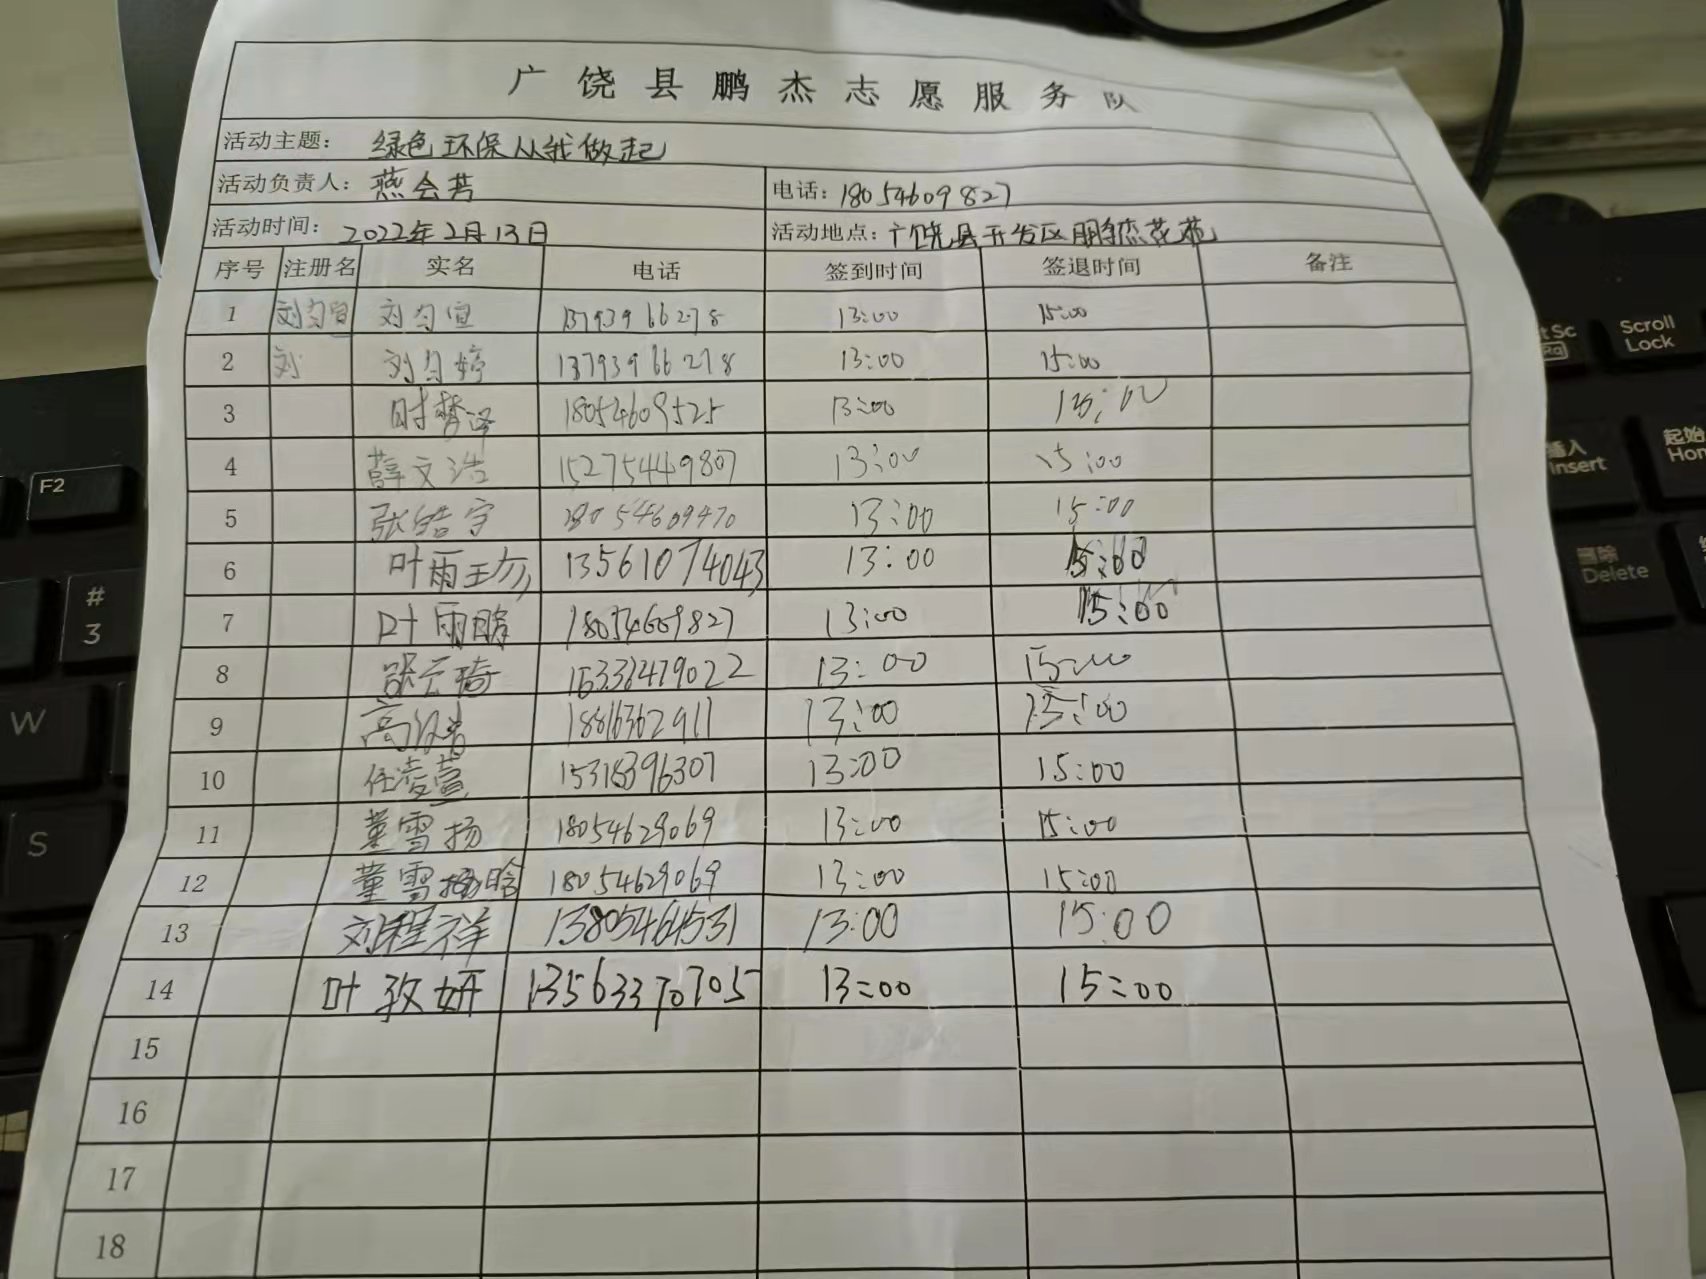 广饶县鹏杰志愿服务队
活动主题： 绿色环保从我做起
活动负责人：燕会芳 电话：18054609827
活动时间：2022年2月13日 活动地点：广饶县开发区鹏杰花苑
序号 注册名 实名 电话 签到时间 签退时间 备注
1 刘匀宜 刘匀宜 13793966278 13:00 15:00
2 刘 刘匀婷 13793966278 13:00 15:00
3 时梦泽 18054609525 13:00 15:00
4 薛文浩 15275449807 13:00 15:00
5 张皓宇 18054609470 13:00 15:00
6 叶雨玏 13561074043 13:00 15:00
7 叶雨鹏 18054609827 13:00 15:00
8 张云琦 13:00 15:00
9 18816362911 13:00 15:00
10 任凌萱 15318396307 13:00 15:00
11 董雪扬 18054629069 13:00 15:00
12 董雪晗 18054629069 13:00 15:00
13 刘程祥 13805464531 13:00 15:00
14 叶孜妍 13563370705 13:00 15:00
15
16
17
18